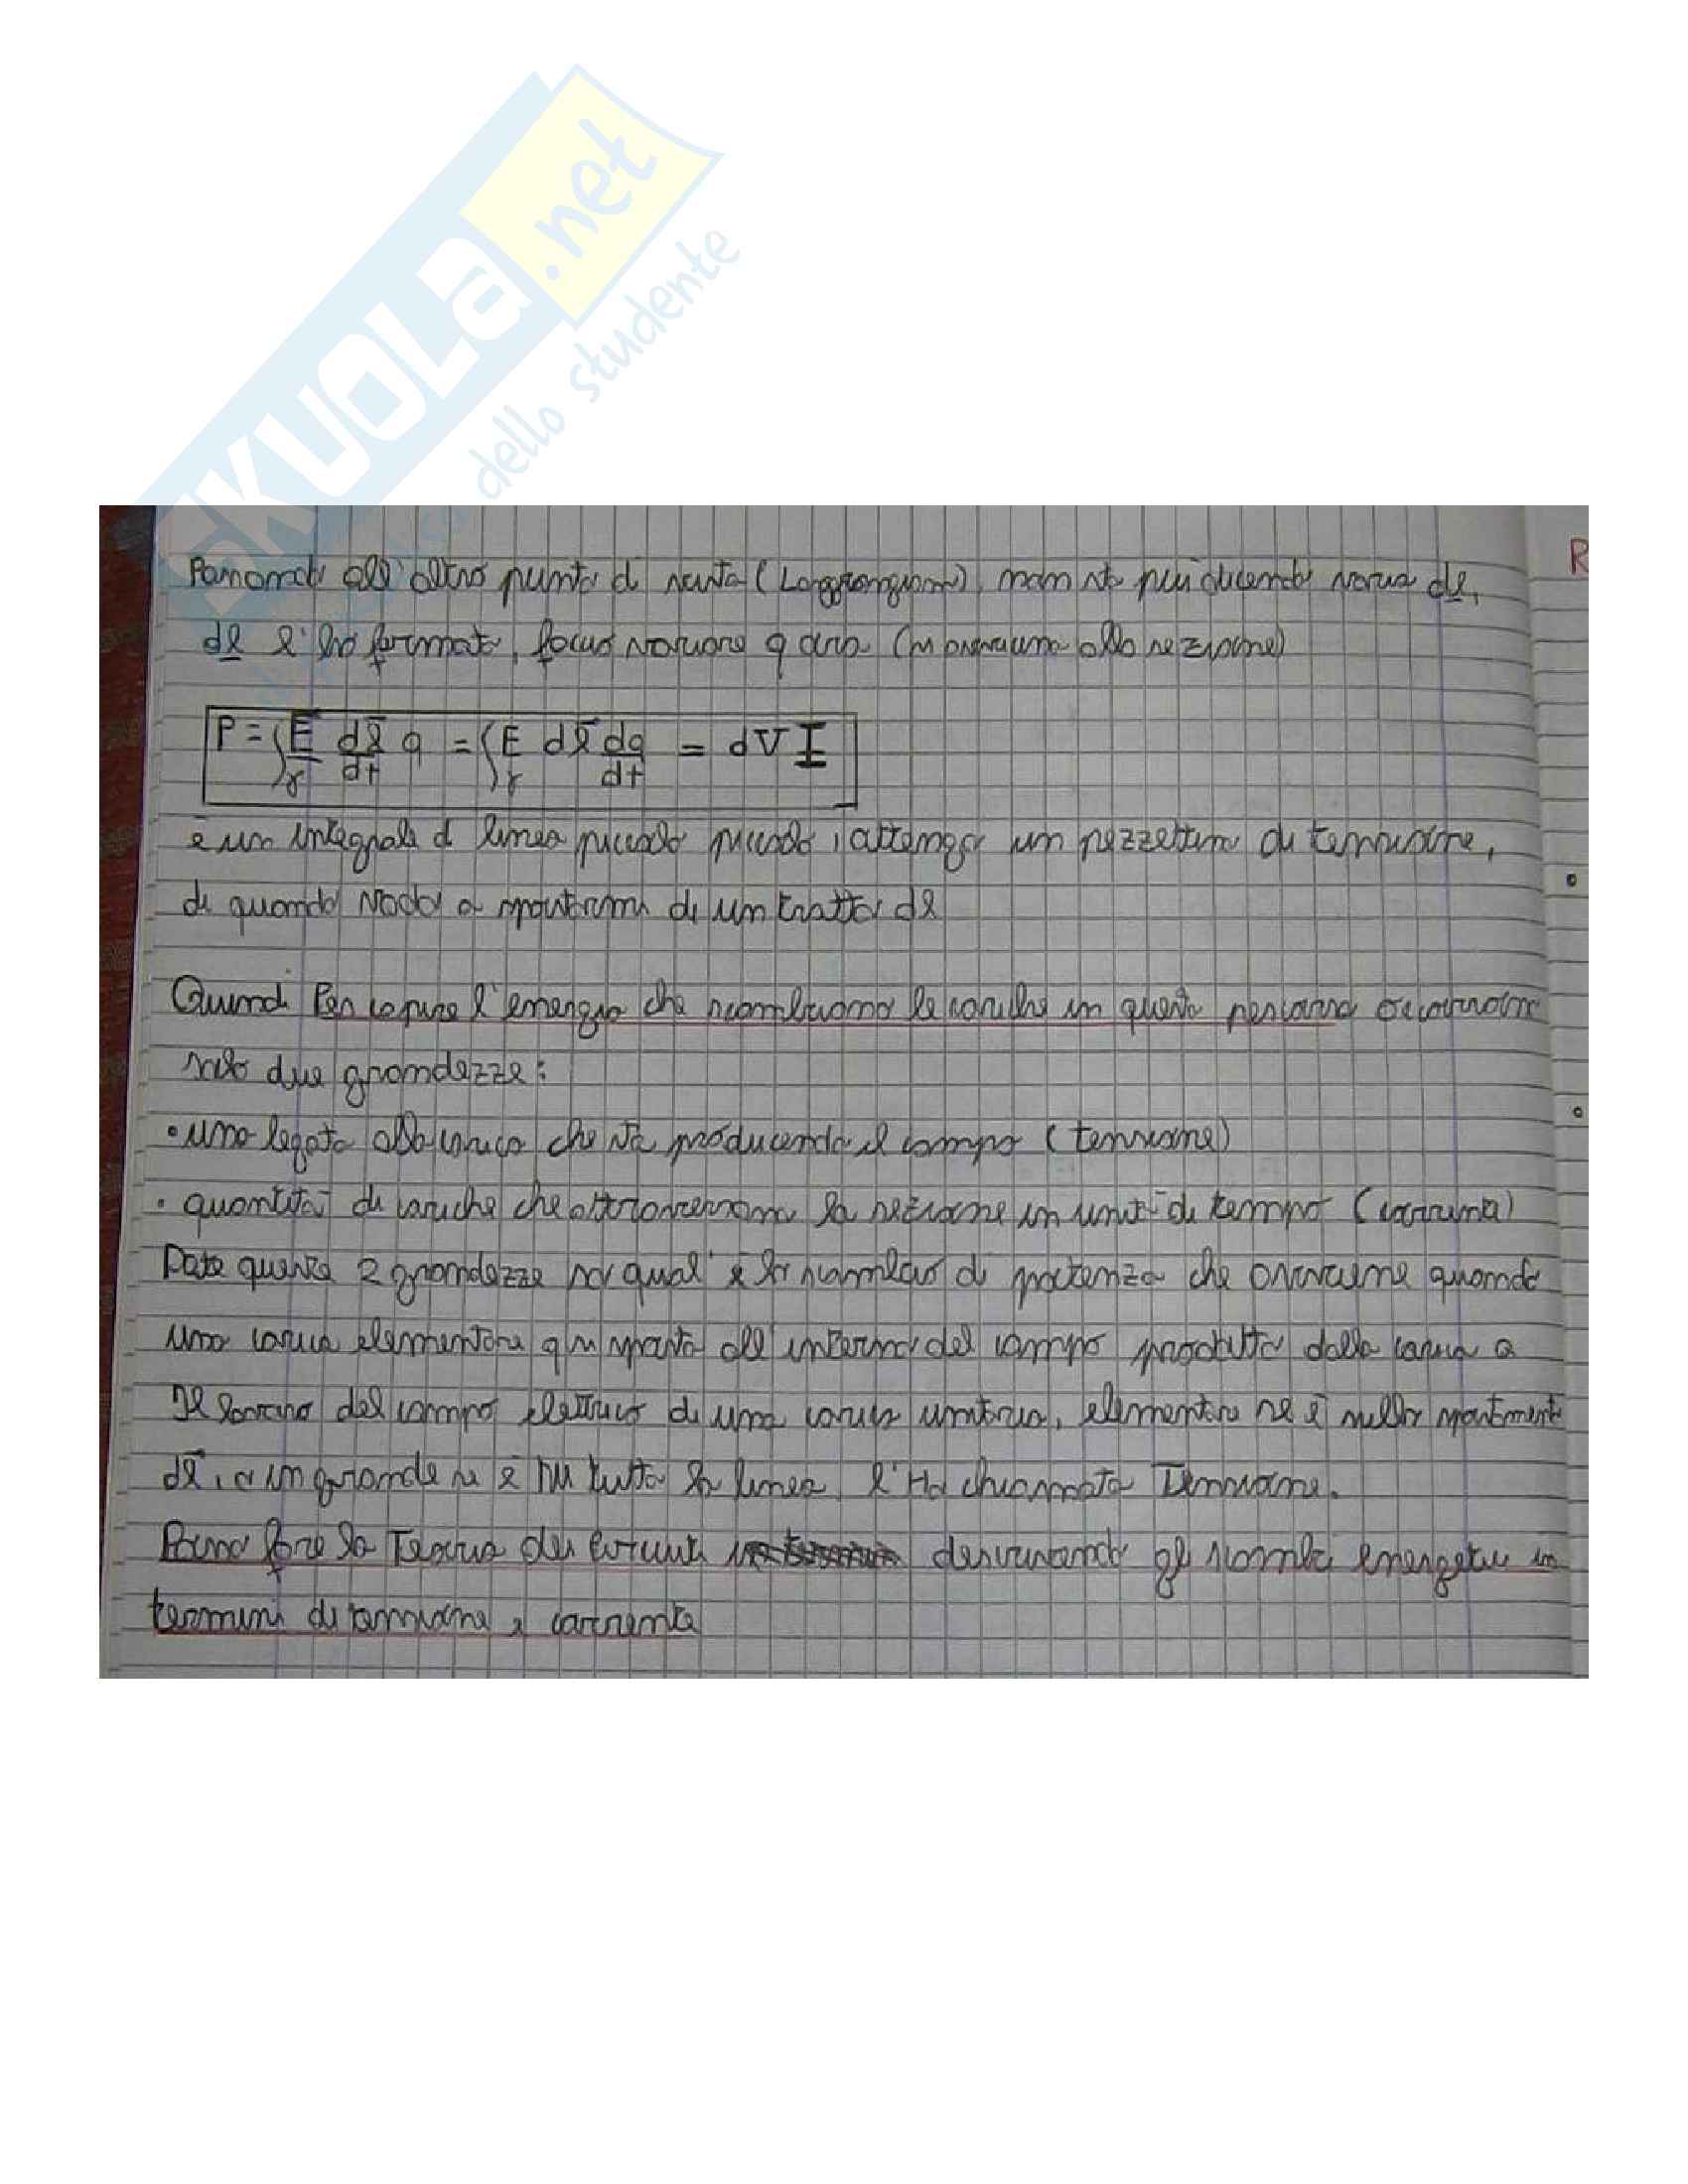 SKUOLA.net
dello studente
Passando all'altro punto di vista (Lagrangiano), non sto più dicendo varia dl,
dl l'ho fermato, faccio variare q ora (mi avvicino alla sezione)
P = ∫γ E dl̄/dt q = ∫γ E dl̄ dq/dt = dV I
è un integrale di linea piccolo piccolo, ottengo un pezzettino di tensione,
di quando vado a spostarmi di un tratto dl
Quindi Per capire l'energia che scambiano le cariche in questo percorso occorrono
solo due grandezze:
• una legata alla carica che sta producendo il campo (tensione)
• quantità di cariche che attraversano la sezione in unità di tempo (corrente)
Date queste 2 grandezze so qual'è lo scambio di potenza che avviene quando
una carica elementare q si sposta all'interno del campo prodotto dalla carica Q
Il lavoro del campo elettrico di una carica unitaria, elementare se è nello spostamento
dl̄, o in grande se è su tutta la linea l'ho chiamata Tensione.
Posso fare la Teoria dei Circuiti descrivendo gli scambi energetici in
termini di tensione e corrente
R